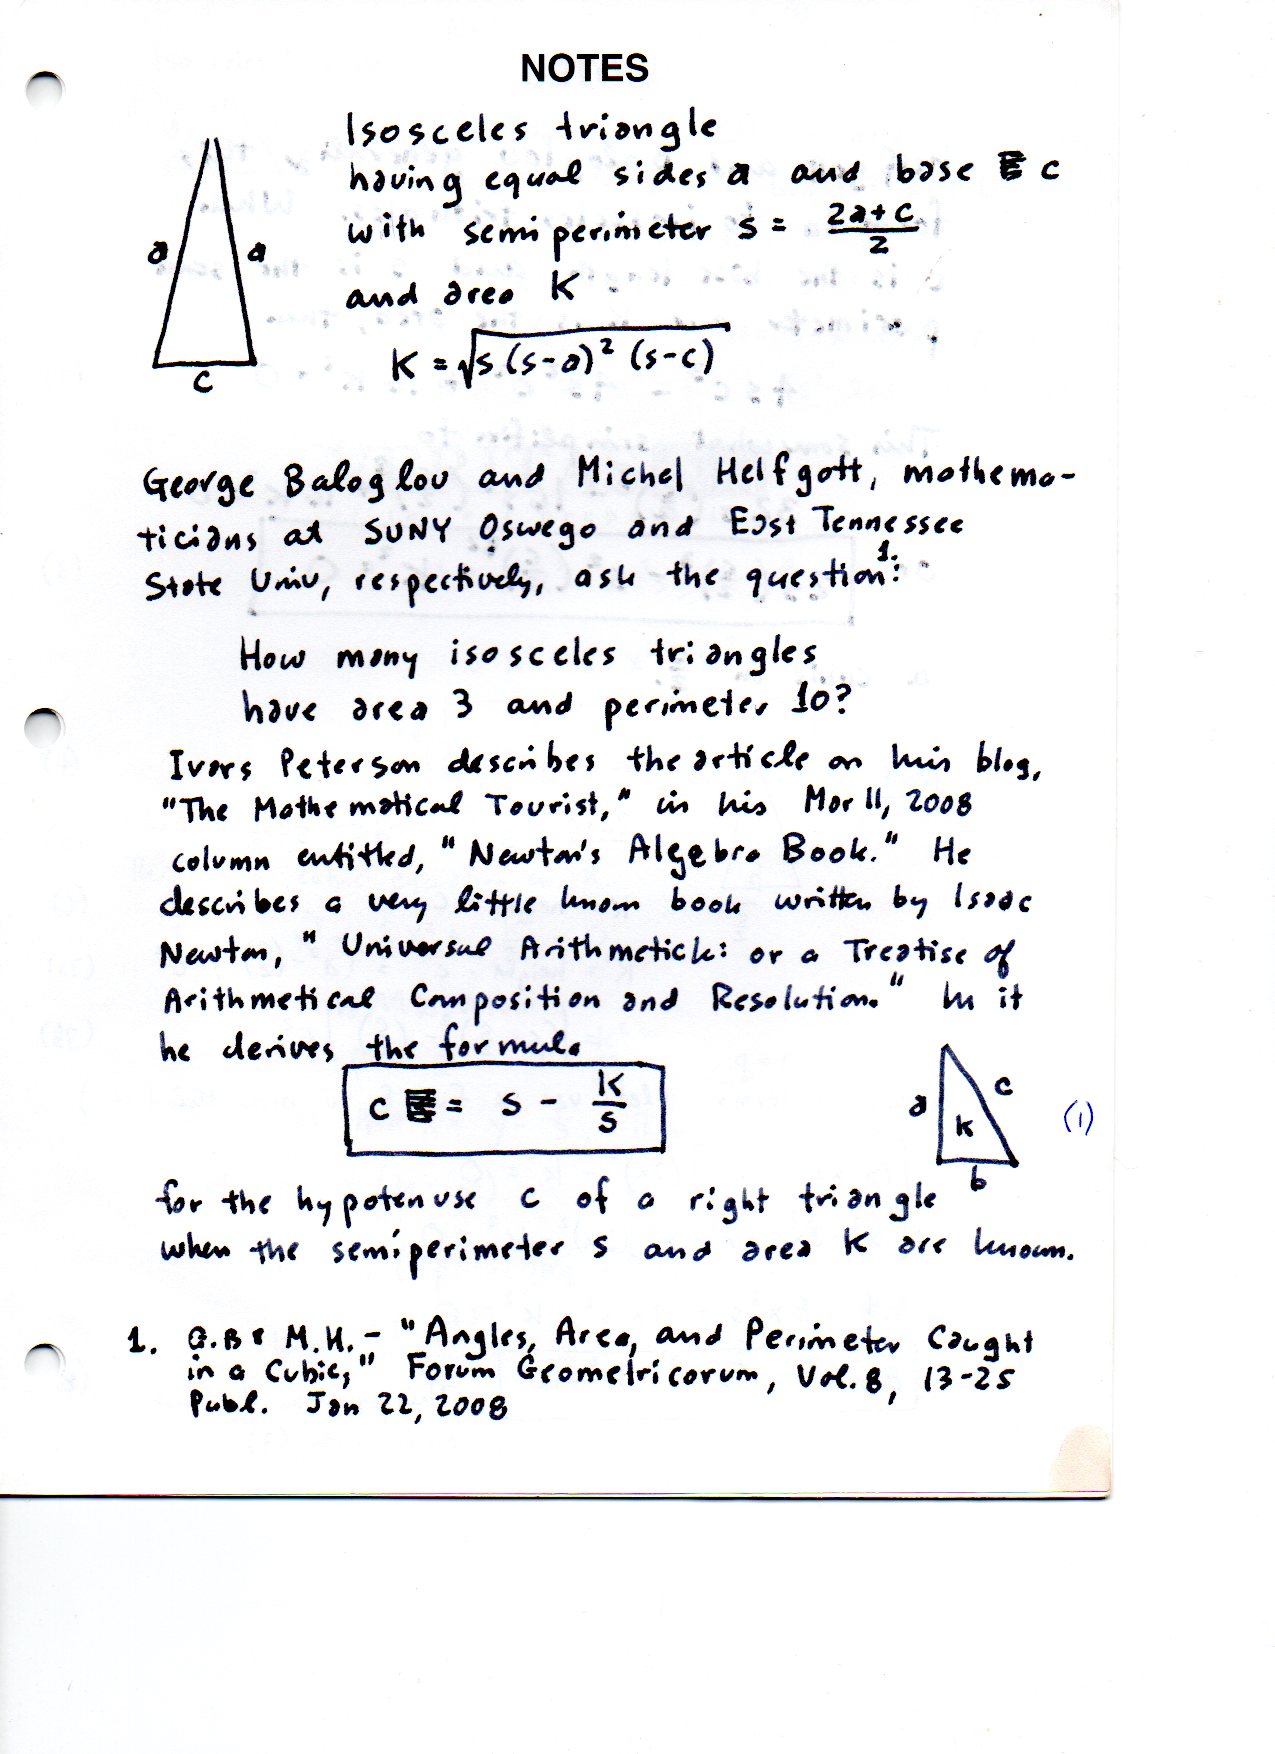 NOTES
Isosceles triangle
having equal sides a and base c
with semiperimeter s = (2a+c)/2
and area K
K = √(s (s-a)² (s-c))
a
a
c
George Baloglou and Michel Helfgott, mathema-
ticians at SUNY Oswego and East Tennessee
State Univ, respectively, ask the question¹·:
How many isosceles triangles
have area 3 and perimeter 10?
Ivars Peterson describes the article on his blog,
"The Mathematical Tourist," in his Mar 11, 2008
column entitled, "Newton's Algebra Book." He
describes a very little known book written by Isaac
Newton, "Universal Arithmetick: or a Treatise of
Arithmetical Composition and Resolution." In it
he derives the formula
c = s - K/s
a
c
K
b
(1)
for the hypotenuse c of a right triangle
when the semiperimeter s and area K are known.
1. G.B & M.H. - "Angles, Area, and Perimeter Caught
in a Cubic," Forum Geometricorum, Vol. 8, 13-25
Publ. Jan 22, 2008